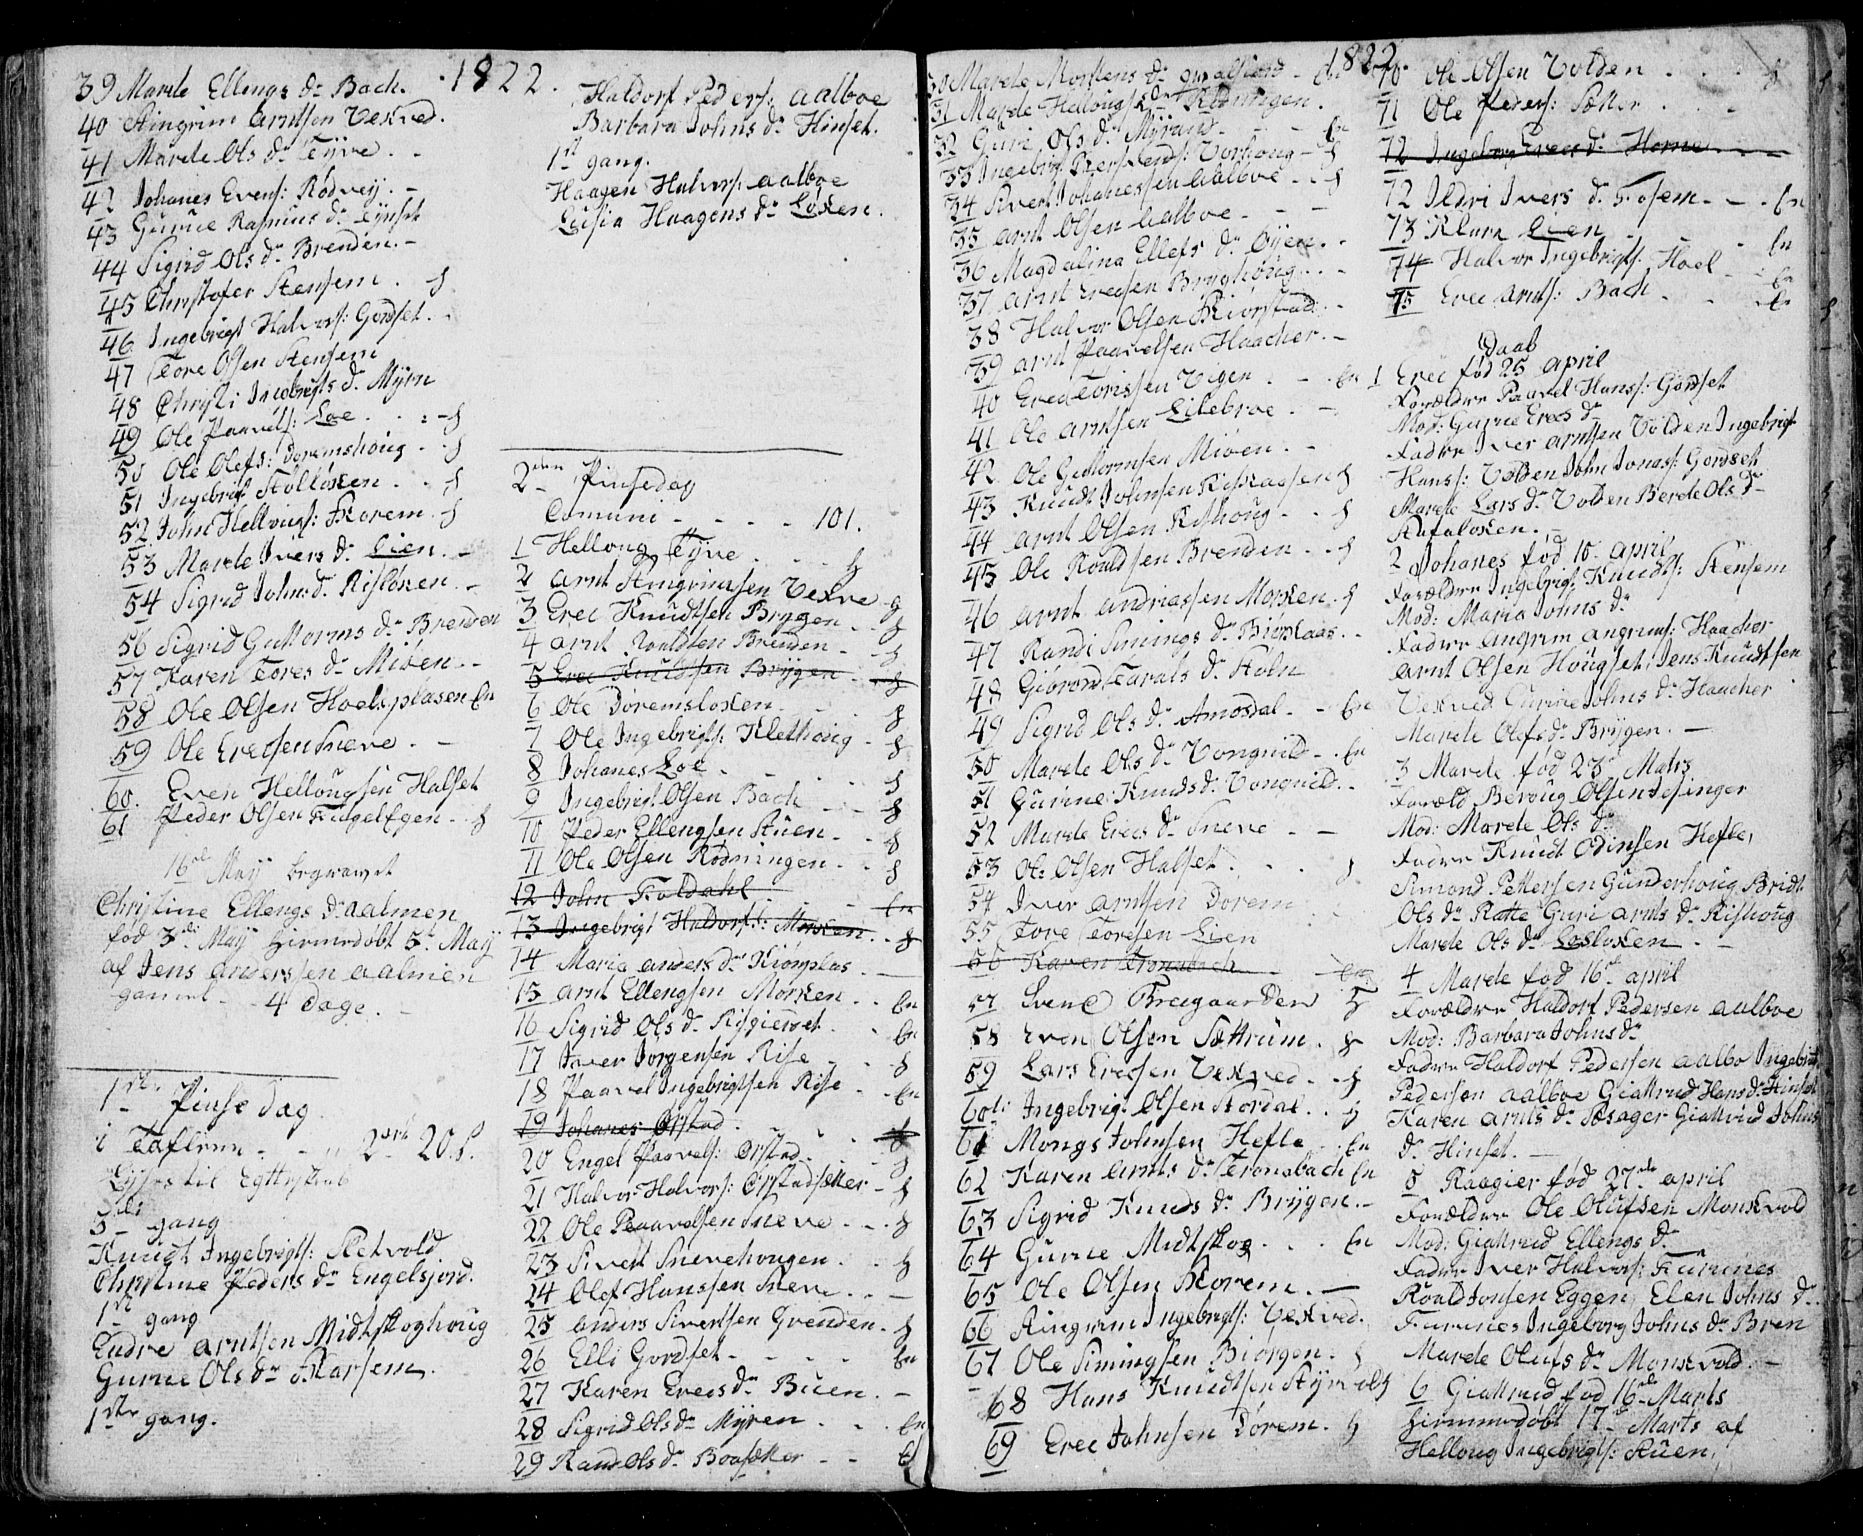 1822.
39 Marele Ellengs dr Bach.
40 Aingrim Arntsen Vekved.
41 Marele Ols dr Tyve
42 Johanes Evens: Rødvey.
43 Gurue Rasmus dr Lynset
44 Sigrid Ols dr Brenden.
45 Christofer Stensem
46 Ingebrigt Halvors: Gordset.
47 Tore Olsen Stensem
48 Christi Ingebrigts dr Myrn
49 Ole Paavels: Loe
50 Ole Olefs: Doremshoug
51 Ingebrigt Stølløken
52 John Hellougs: Skorem
53 Marele Ivers dr Lien
54 Sigrid Johns dr Risløken
56 Sigrid Guttorms dr Brenden
57 Karen Tores dr Mioen
58 Ole Olsen Hoelsplasen En
59 Ole Erecsen Sneve
60. Even Hellougsen Halset
61 Peder Olsen FugelEgen
16de May begravet
Christine Ellengs dr aalmen
fød 3di May hiemedøbt 5t May
af Jens anderssen aalmen
gamel 4 dage.
1ste Pinse dag
i Taflene 2 20 s.
Lyses til Egteskab
3die gang
Knudt Ingebrigts: Sletvold
Christine Peders dr Engelsjord.
1st gang
Endre arntsen Midtskoghoug
Gurue Ols dr Skarsem
1ste gang.
Haldorf Peders: aalboe
Barbara Johns dr Hinset.
1st gang.
Haagen Halvors: aalboe
Lusia Haagens dr Løken.
2den Pinsedag
Comuni 101.
1 Helloug Tyve
2 arnt Aingrimsen Vekve
3 Erec Knudtsen Brygen
4 arnt Roaldsen Brenden
5 Erec Knudtsen Brygen
6 Ole Doremsløken
7 Ole Ingebrigts: Kletthoug
8 Johanes Loe
9 Ingebrigt Olsen Bach
10 Peder Ellengsen Stuen
11 Ole Olsen Rødningen
12 John Foldahl En
13 Ingebrigt Haldorfs: Morken
14 Maria anders dr Kiønplas
15 arnt Ellengsen Mørken En
16 Sigrid Ols dr Risgierset En
17 Iver Jorgensen Rise
18 Paavel Ingebrigtsen Rise En
19 Johanes Ørstad
20 Engel Paavels: Ørstad
21 Halvor Halvors: Ørstadsetter
22 Ole Paavelsen Sneve
23 Sivert Snevehougen
24 Olef Hanssen Sneve
25 anders Sivertsen Grenden
26 Elli Gordset En
27 Karen Erecs dr Buen
28 Sigrid Ols dr Myren En
29 Rand Ols dr Boasetter
1822.
30 Marele Mortens dr En
31 Marele Hellougs dr Rødningen.
32 Guri Ols dr Myrand En
33 Ingebrigt Vorhoug
34 Sivert Johanessen aalboe
35 arnt Olsen aalboe
36 Magdalina Ellefs dr Øyen
37 arnt Erecsen Bryghoug
38 Halvor Olsen Kiørstad
39 arnt Paavelsen Haacher
40 Erec Torissen Vegen En
41 Ole arntsen Lilebroe
42 Ole Guttormsen Mioen
43 Knudt Johnsen Riskaasen
44 arnt Olsen Rishoug
45 Ole Roaldsen Brenden
46 arnt andriassen Morken
47 Randi Simings dr Bioplaas
48 Gibrond Tarals dr Støln
49 Sigrid Ols dr Amosdal En
50 Marele Ols dr Vonguild En
51 Gurine Knuds dr Vonguild
52 Marele Erecs dr Sneve
53 Ole Olsen Halset
54 Iver arntsen Dorem
55 Tore Toresen Lien
56 Karen Tronsbach En
57 Svend Breegaarden
58 Even Olsen Sættrum
59 Lars Erecsen Vekved
60 Ingebrigt Olsen Stordal
61 Mongs Johnsen Hefle En
62 Karen arnts dr Tronsbach En
63 Sigrid Knuds dr Brygen
64 Gurue Midtskog En
65 Ole Olsen Skorem
66 Aingrim Ingebrigts: Vekved.
67 Ole Simingsen Biørgen
68 Hans Knudtsen Styrvold
69 Erec Johnsen Dørem.
70 Ole Olsen Volden
71 Ole Peders: Sætter
72 Ingeborg Erecs dr Horne
72 Ildri Ivers dr Fosem En
73 Klara Lien En
74 Halvor Ingebrigts: Hoel En
75 Erec arnts: Bach En
Daab
1 Erec fød 25 april
Forældre Paavel Hanss: Gordset
Mod: Gurue Erecs dr
Fadre Iver arntsen Volden Ingebrigt
Hanss: Volden John Jonas: Gordset
Marele Lars dr Volden Berele Ols dr
Stafaløken.
2 Johanes fød 10 april
Forældre Ingebrigt Knudts: Stensem
Mod: Maria Johns dr
Fadre angrim angrims: Haacher
arnt Olsen Hougset, Jens Knudtsen
Vekved Gurue Johns dr Haacher
Marele Olefs dr Brygen.
3 Marele fød 23 Mahs
Foræld Beroug Olsen Jesinger
Mod: Marele Ols dr
Fadre Knudt Odinsen Hefle,
Simond Pettersen Gunderhoug Bridt
Ols dr Ratte Guri arnts dr Rishoug
Marele Ols dr Lesløken
4 Marele fød 16de april
Forældre Haldorf Pedersen aalboe
Mod: Barbara Johns dr
Fadre Haldorf Pedersen aalbo Ingebrigt
Pedersen aalboe Giattrud Hans dr Hinset
Karen arnts dr Giattrud Johns
dr Hinset.
5 Raagier fød 27de april
Forældre Ole Olufsen Monkvold
Mod: Giattrud Ellengs dr
Fadre Iver Halvors: Furunes
Roald Jonsen Eggen, Elen Johns dr
Furunes Ingeborg Johns dr Bren
Marele Olufs dr Monkvold.
6 Giattrud fød 16de Marts
hiemmedøbt 17de Marts af
Helloug Ingebrigts: Stuen,